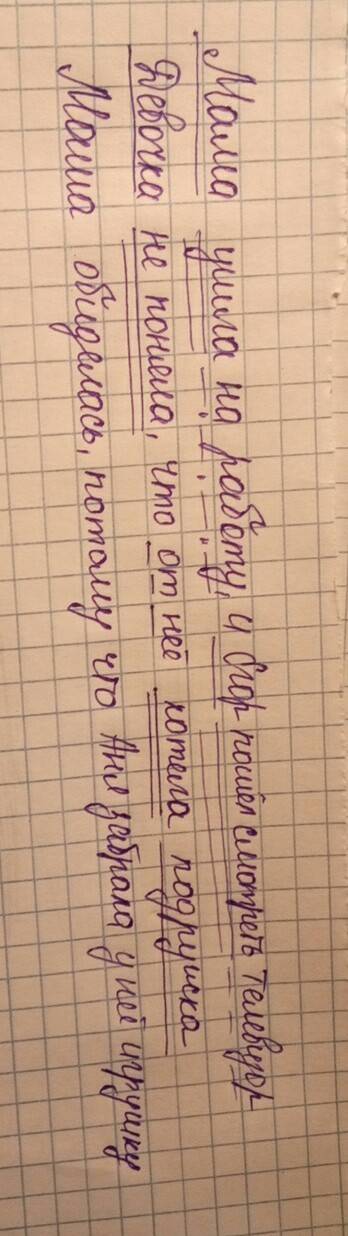 Мама ушла на работу, и Егор пошёл смотреть телевизор
Девочка не поняла, что от неё хотела подружка
Маша обиделась, потому что Аня забрала у неё игрушку